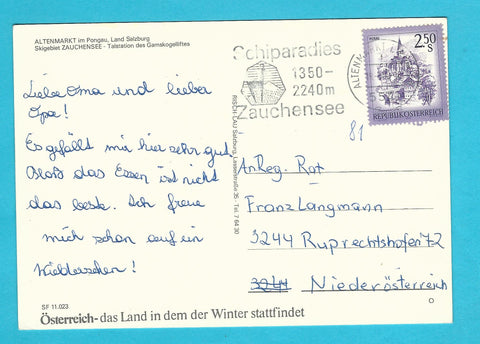 ALTENMARKT im Pongau, Land Salzburg
Skigebiet ZAUCHENSEE - Talstation des Gamskogelliftes
Liebe Oma und lieber
Opa!
Es gefällt mir hier sehr gut
bloß das Essen ist nicht
das beste. Ich freue
mich schon auf ein
Wiedersehen!
SF 11.023
Österreich - das Land in dem der Winter stattfindet
Schiparadies
1350-
2240m
Zauchensee
ALTENM
2.50
S
REPUBLIK ÖSTERREICH
81
An Reg. Rat
Franz Langmann
3244 Ruprechtshofen 72
3244 Niederösterreich